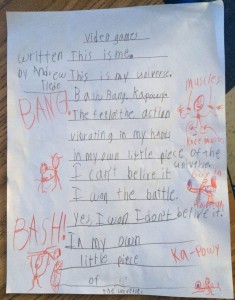 video games
written
by Andrew
This is me.
This is my universe.
BANG!
Bam, Bang, Kapowy.
The feel of the action
vibrating in my hands
in my own little piece of the
universe.
muscles
I can't belive it
I won the battle.
Yes, I won I don't belive it!
BASH!
In my own
little piece
of
the universe.
Ka-Powy